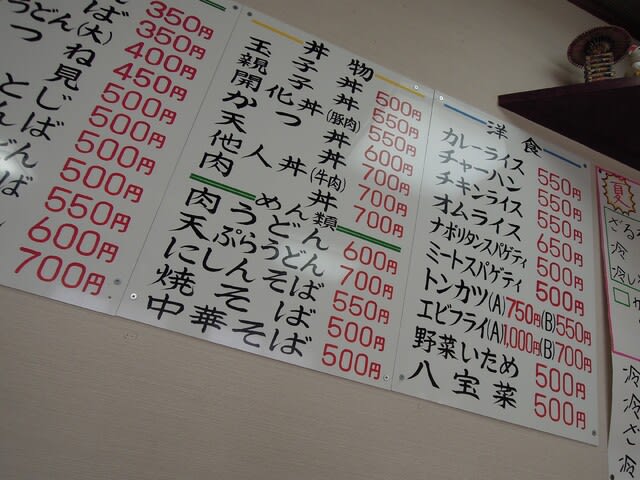 ば 350円
うどん(大) 350円
つね 400円
見 450円
じ 500円
ば 500円
500円
500円
550円
600円
700円
丼物
玉子丼 500円
親子丼 550円
開化丼(豚肉) 550円
かつ丼 600円
天丼 700円
他人丼(牛肉) 700円
肉丼 700円
めん類
肉うどん 600円
天ぷらうどん 700円
にしんそば 550円
焼そば 500円
中華そば 500円
洋食
カレーライス 550円
チャーハン 550円
チキンライス 550円
オムライス 650円
ナポリタンスパゲティ 500円
ミートスパゲティ 500円
トンカツ(A)750円(B)550円
エビフライ(A)1,000円(B)700円
野菜いため 500円
八宝菜 500円
夏